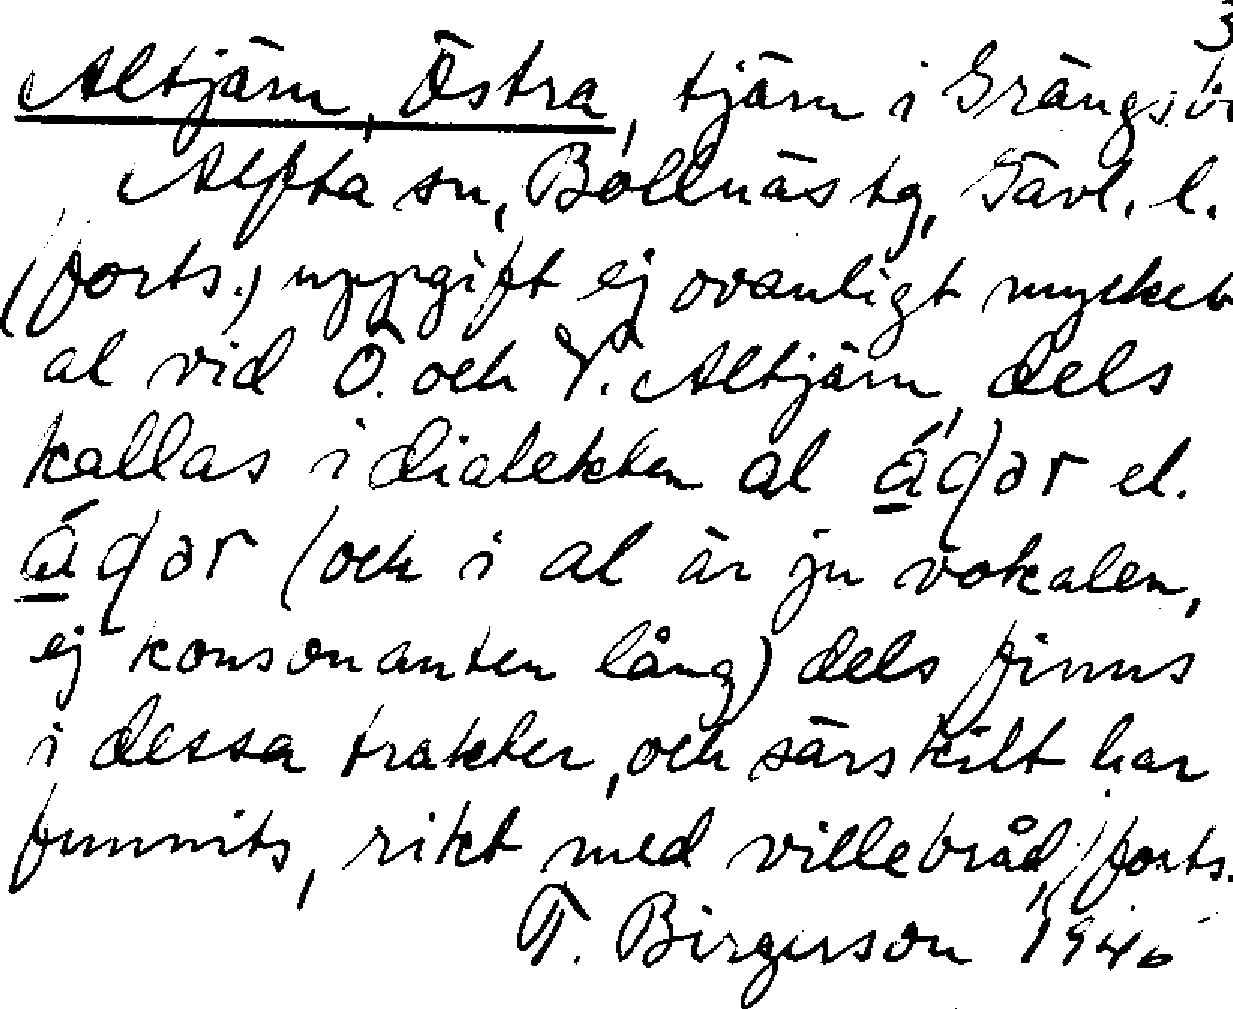 3
Altjärn, Östra, tjärn i Grängsbo
Alfta sn, Bollnäs tg, Gävl. l.
(forts.) uppgift ej ovanligt mycket
al vid Ö. och V. Altjärn, dels
kallas i dialekten al el.
(och i al är ju vokalen,
ej konsonanten lång) dels finns
i dessa trakter, och särskilt har
funnits, rikt med villebråd, (forts.
T. Birgerson 1946